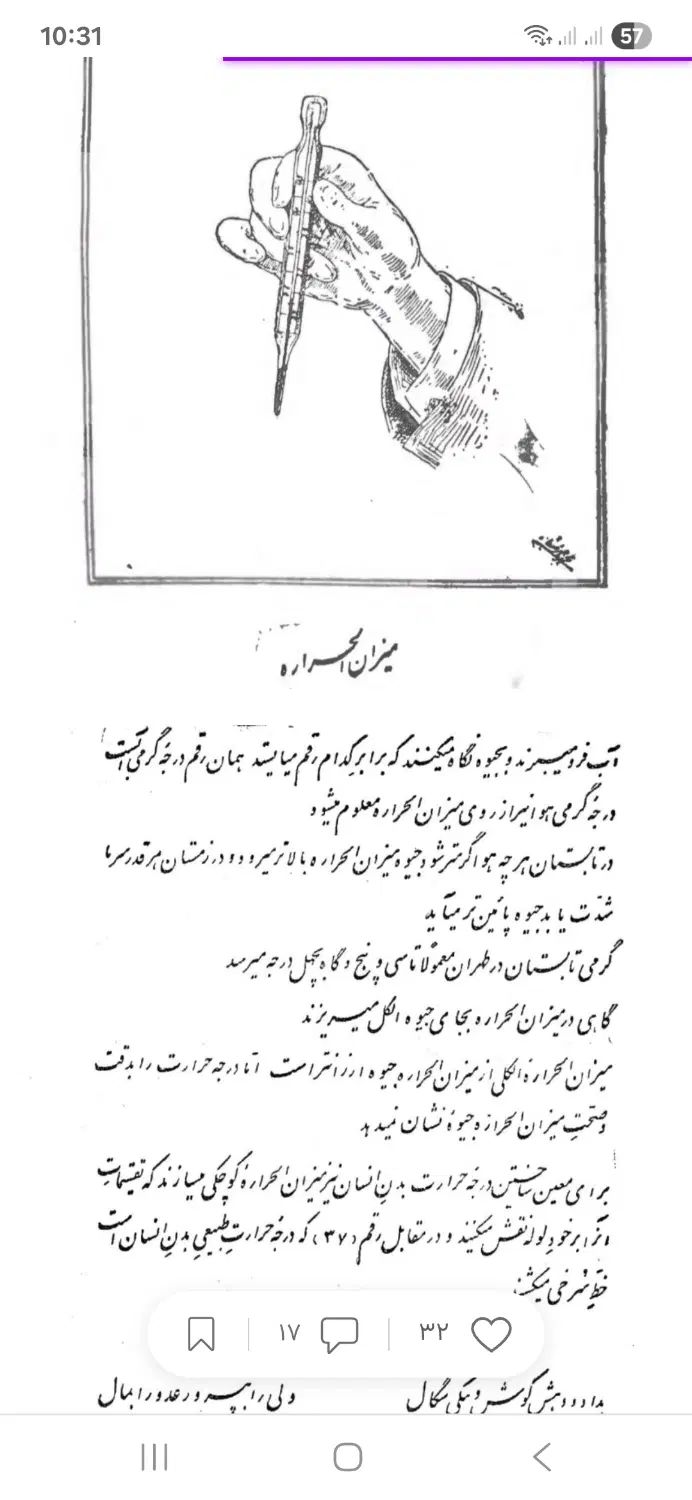 10:31
57
میزان الحراره
آب فرو میبرند و بجیوه نگاه میکنند که برابر کدام رقم میایستد همان رقم درجهٔ گرمی آبست
درجهٔ گرمی هوا نیز از روی میزان الحراره معلوم میشود
در تابستان هر چه هوا گرمتر شود جیوهٔ میزان الحراره بالاتر میرود و در زمستان هر قدر سرما
شدّت یابد جیوه پائین تر میآید
گرمی تابستان در طهران معمولاً تا سی و پنج و گاه بچهل درجه میرسد
گاهی در میزان الحراره بجای جیوه الکل میریزند
میزان الحرارهٔ الکلی از میزان الحراره جیوه ارزانتر است امّا درجه حرارت را بدقت
و صحّتِ میزان الحرارهٔ جیوهٔ نشان نمیدهد
برای معین ساختن درجهٔ حرارت بدنِ انسان نیز میزان الحرارهٔ کوچکی میسازند که تقسیماتِ
آنرا بر خودِ لوله نقش میکنند و در مقابل رقم (۳۷) که درجهٔ حرارتِ طبیعیِ بدنِ انسان است
خطِّ سُرخی میکشند
۱۷
۳۲
بداد و دهش کوش و نیکی سگال
ولی را بپرور عدو را بمال